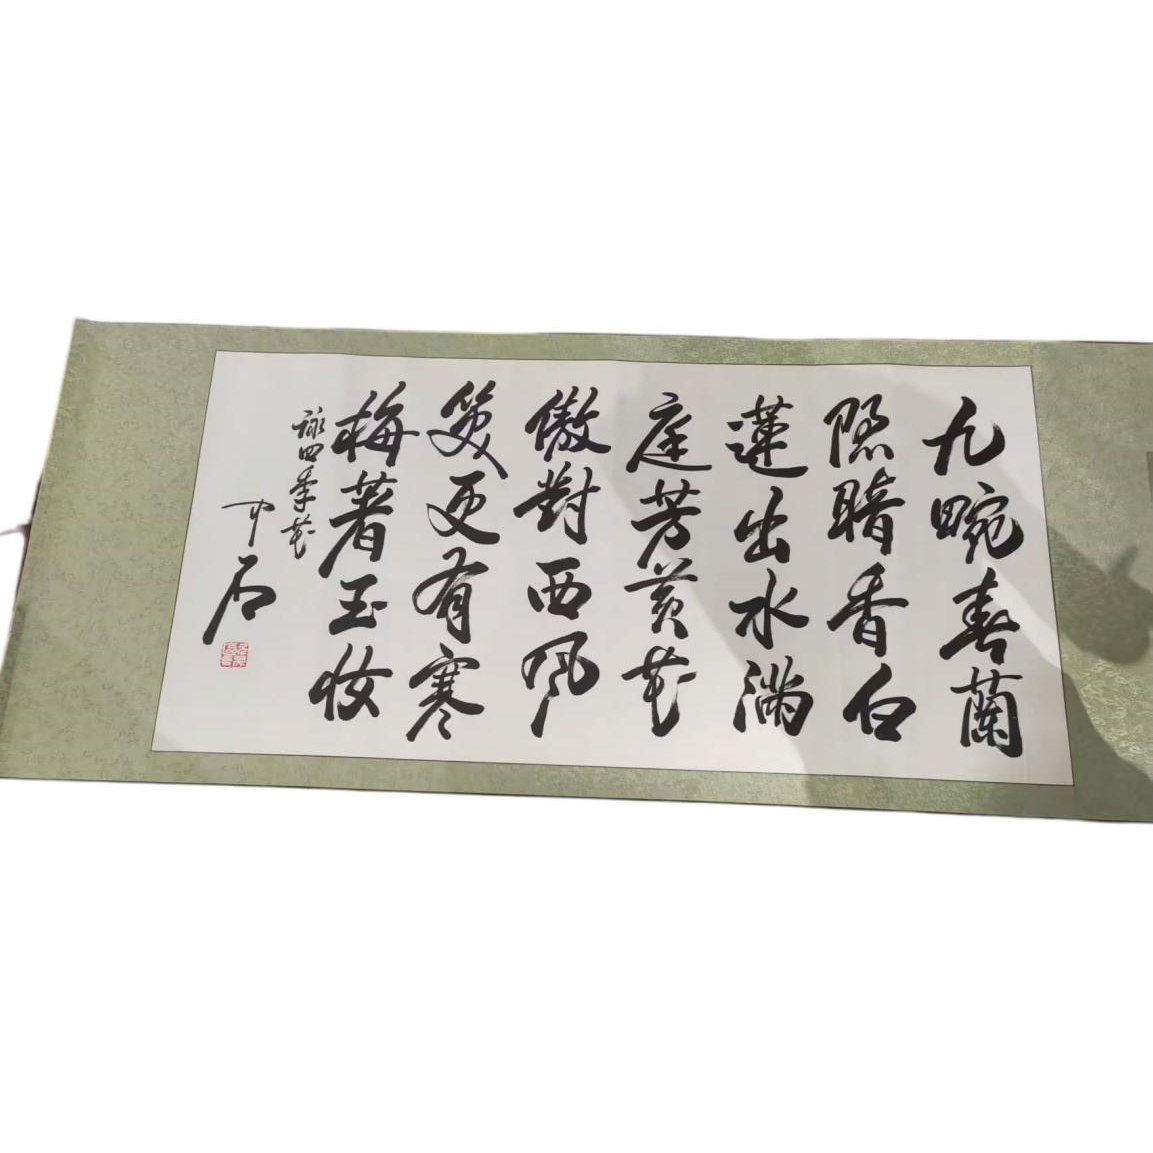 九畹春蘭
隱暗香白
蓮出水滿
庭芳黃花
傲對西風
笑更有寒
梅著玉妝
詠四季花
中石